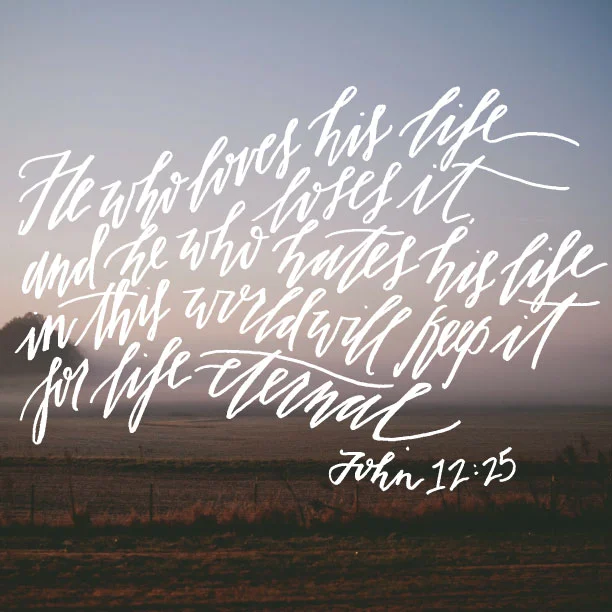 He who loves his life
loses it,
and he who hates his life
in this world will keep it
for life eternal
John 12:25